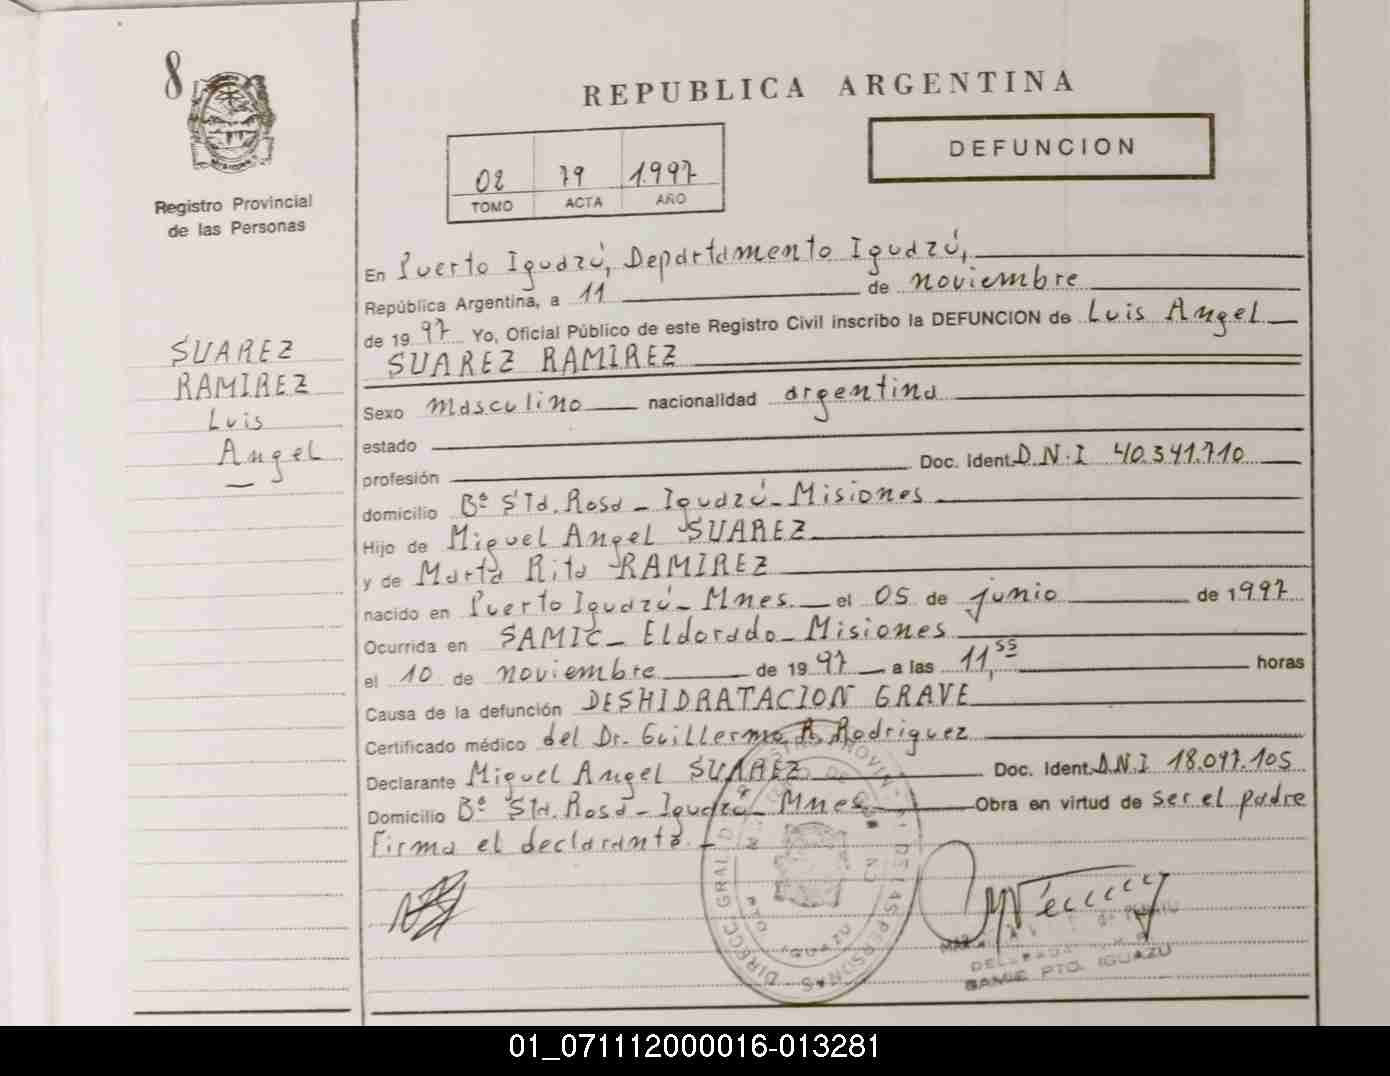 8
REPUBLICA ARGENTINA
DEFUNCION
02 79 1.997
TOMO ACTA AÑO
Registro Provincial
de las Personas
SUAREZ
RAMIREZ
Luis
Angel
En Puerto Iguazú, Departamento Iguazú,
República Argentina, a 11 de noviembre
de 19 97 Yo, Oficial Público de este Registro Civil inscribo la DEFUNCION de Luis Angel
SUAREZ RAMIREZ
Sexo masculino nacionalidad argentina
estado
profesión Doc. Ident. D.N.I 40.341.710
domicilio Bº Sta. Rosa - Iguazú - Misiones
Hijo de Miguel Angel SUAREZ
y de Marta Rita RAMIREZ
nacido en Puerto Iguazú - Mnes. el 05 de junio de 1997
Ocurrida en SAMIC - Eldorado - Misiones
el 10 de noviembre de 19 97 a las 11,55 horas
Causa de la defunción DESHIDRATACION GRAVE
Certificado médico del Dr. Guillermo R. Rodriguez
Declarante Miguel Angel SUAREZ Doc. Ident. D.N.I 18.097.105
Domicilio Bº Sta. Rosa - Iguazú - Mnes. Obra en virtud de ser el padre
Firma el declarante. -
DE LAS PERSONAS
DIRECC. GRAL. D
IGUAZU
PTO. IGUAZU
01_071112000016-013281